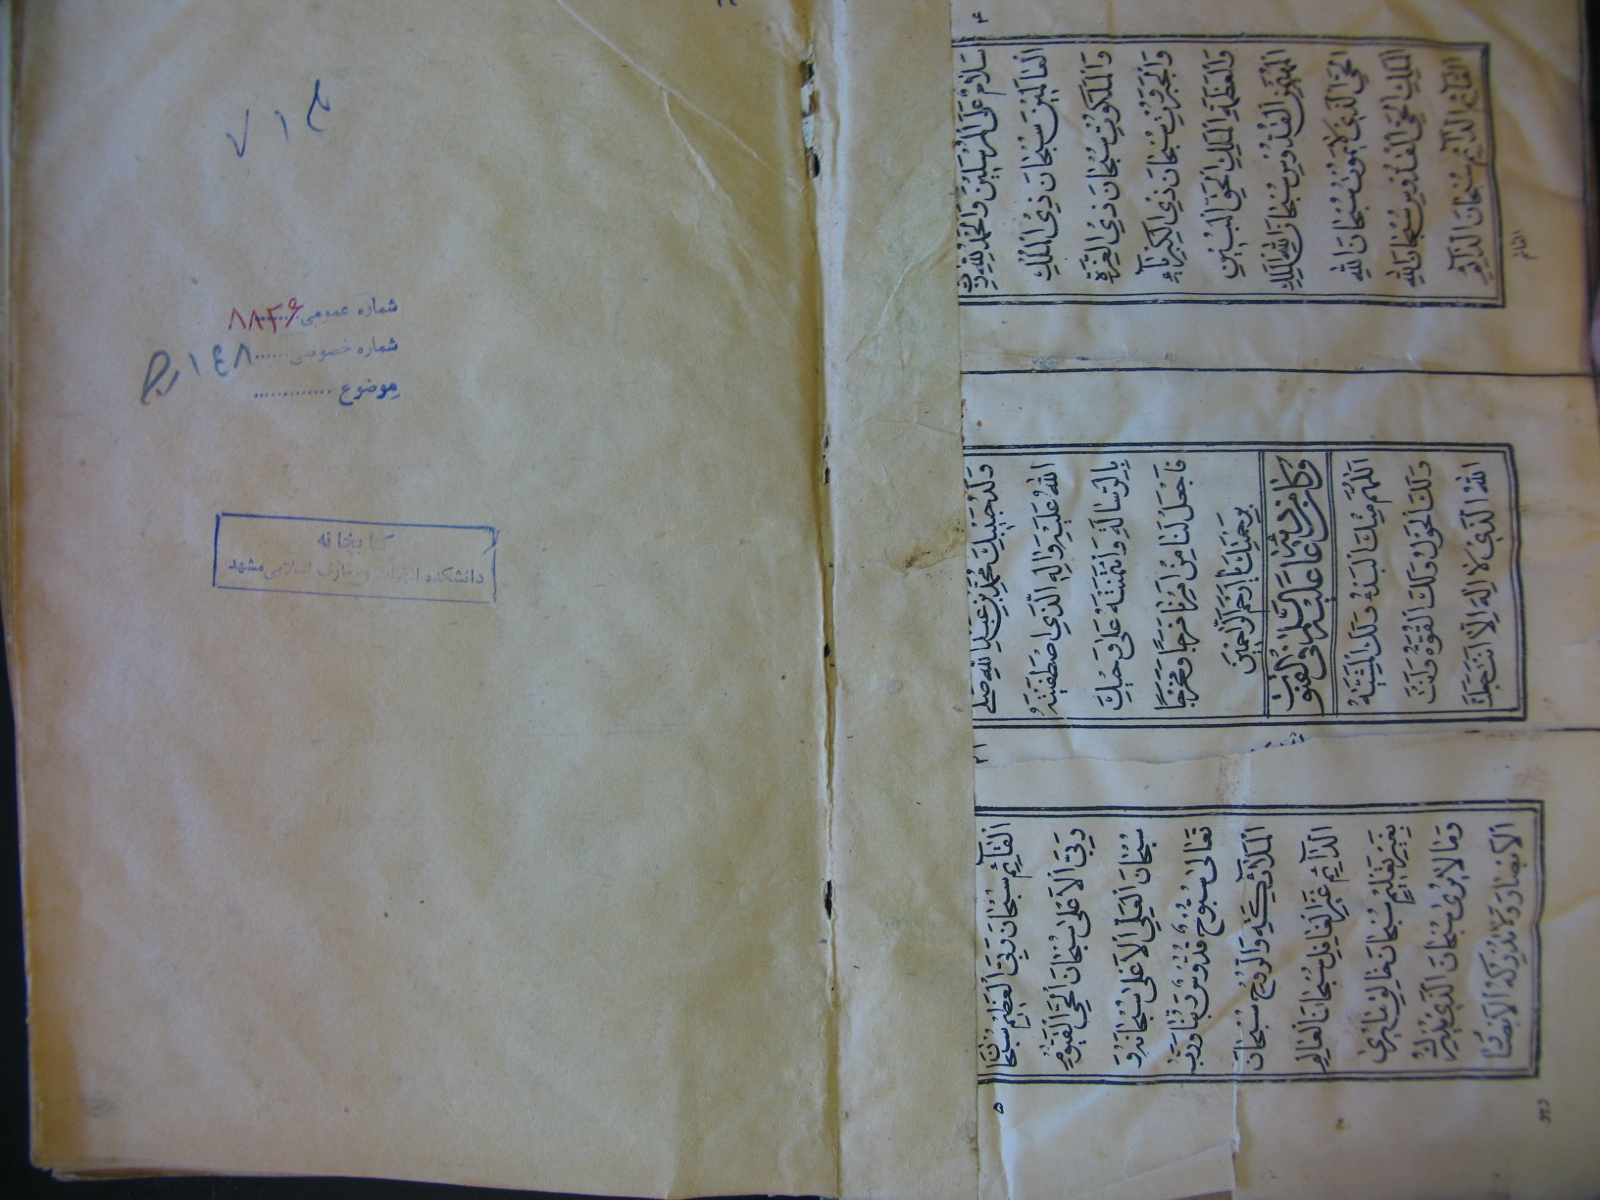 ۷۱۴
شماره عمومی ۸۸۴۶
شماره خصوصی ۱۴۸
موضوع
کتابخانه
دانشکده الهیات و معارف اسلامی مشهد
۴
سَلامٌ عَلَى الْمُرْسَلينَ وَالْحَمْدُ لِلّهِ رَبِّ
الْعالَمينَ سُبْحانَ ذِى الْمُلْكِ
وَالْمَلَكُوتِ سُبْحانَ ذِى الْعِزَّةِ
وَالْجَبَرُوتِ سُبْحانَ ذِى الْكِبْرِيآءِ
وَالْعَظَمَةِ الْمَلِكِ الْحَقِّ الْمُبينِ
الْمُهَيْمِنِ الْقُدُّوسِ سُبْحانَ اللهِ الْمَلِكِ
الْحَىِّ الَّذى لا يَمُوتُ سُبْحانَ اللهِ
الْمَلِكِ الْحَىِّ الْقُدُّوسِ سُبْحانَ اللهِ
الْقآئِمِ الدّآئِمِ سُبْحانَ الدّآئِمِ
القائم
وَلَدُ حَبيبِكَ مُحَمَّدِ بْنِ عَبْدِ اللهِ صَلَّى
اللهُ عَلَيْهِ وَالِهِ الَّذِى اصْطَفَيْتَهُ
بِالرِّسالَةِ وَائْتَمَنْتَهُ عَلى وَحْيِكَ
فَاجْعَلْ لَنا مِنْ اَمْرِنا فَرَجًا وَمَخْرَجًا
بِرَحْمَتِكَ يا اَرْحَمَ الرّاحِمينَ
وَكانَ مِنْ دُعآئِهِ عَلَيْهِ السَّلامُ فِى الْقُنُوتِ
اَللّهُمَّ مِنْكَ الْبَدْءُ وَلَكَ الْمَشِيَّةُ
وَلَكَ الْحَوْلُ وَلَكَ الْقُوَّةُ وَاَنْتَ
اللهُ الَّذى لا اِلهَ اِلّا اَنْتَ جَعَلْتَ
۵
الْقآئِمِ سُبْحانَ رَبِّىَ الْعَظيمِ سُبْحانَ
رَبِّىَ الْاَعْلى سُبْحانَ الْحَىِّ الْقَيُّومِ
سُبْحانَ الْعَلِىِّ الْاَعْلى سُبْحانَهُ وَ
تَعالى سُبُّوحٌ قُدُّوسٌ رَبُّنا وَرَبُّ
الْمَلآئِكَةِ وَالرُّوحِ سُبْحانَ
الدّآئِمِ غَيْرِ الْغافِلِ سُبْحانَ الْعالِمِ
بِغَيْرِ تَعْليمٍ سُبْحانَ خالِقِ ما يُرى
وَما لا يُرى سُبْحانَ الَّذى يُدْرِكُ
الْاَبْصارَ وَلا تُدْرِكُهُ الْاَبْصارُ